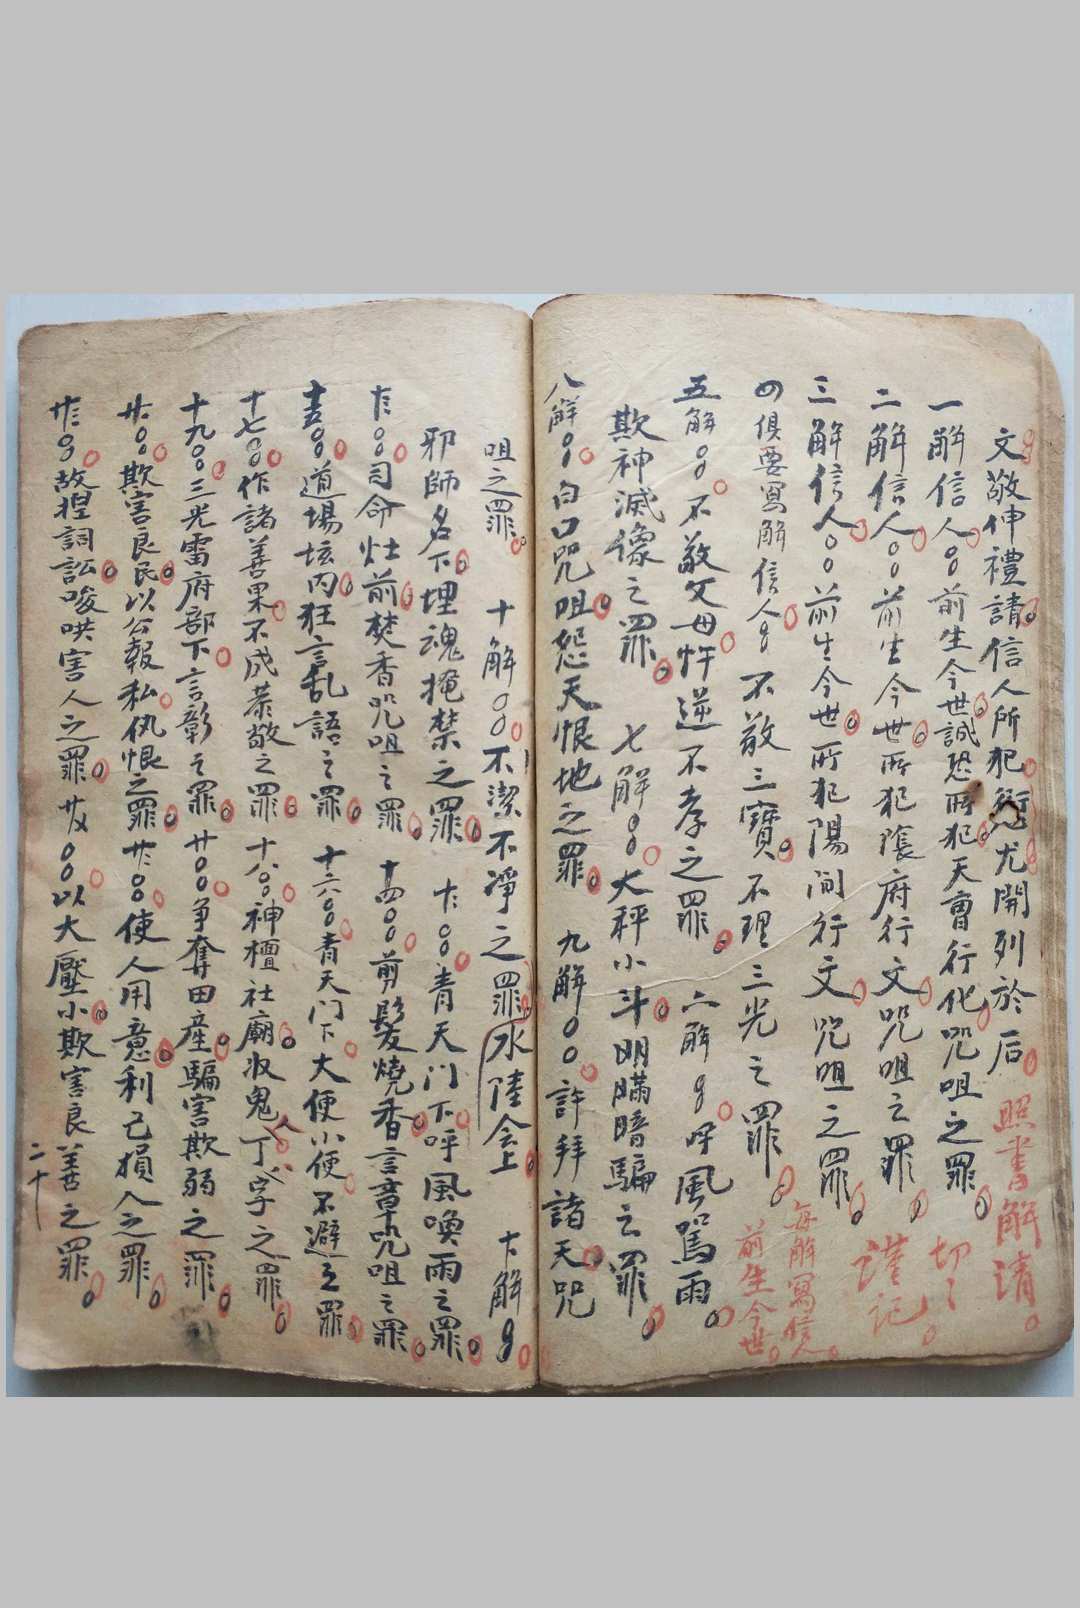 文敬伸禮請信人所犯愆尤開列於后 照書解請
一解信人〇〇前生今世誠恐所犯天曹行化咒咀之罪 切々
二解信人〇〇前生今世所犯陰府行文咒咀之罪 謹記
三解信人〇〇前生今世所犯陽间行文咒咀之罪
四俱要寫解信人〇 不敬三寳不理三光之罪 每解寫信人前生今世
五解〇〇不敬父母忤逆不孝之罪 六解〇〇呼風罵雨
欺神滅像之罪 七解〇〇大秤小斗明瞞暗騙之罪
八解〇〇白口咒咀怨天恨地之罪 九解〇〇許拜諸天咒
咀之罪 十解〇〇不潔不凈之罪水陸会上 十一解〇〇
邪師名下埋魂掩禁之罪 十二〇〇青天门下呼風喚雨之罪
十三〇〇司命灶前焚香咒咀之罪 十四〇〇剪髮燒香言章咒咀之罪
十五〇〇道場坛内狂言乱語之罪 十六〇〇青天门下大便小便不避之罪
十七〇〇作諸善果不成恭敬之罪 十八〇〇神檀社廟收鬼丁字之罪
十九〇〇三光雷府部下言彰之罪 廿〇〇争奪田產騙害欺弱之罪
廿一〇〇欺害良民以公報私仇恨之罪 廿二〇〇使人用意利己損人之罪
廿三〇〇故捏詞訟唆哄害人之罪 廿四〇〇以大壓小欺害良善之罪
二十